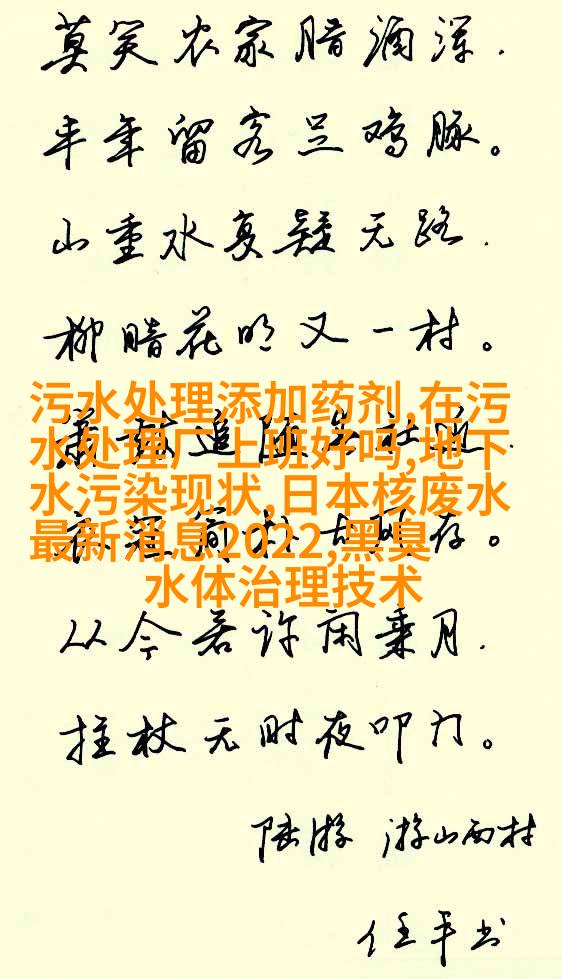 莫笑农家腊酒浑.
丰年留客足鸡豚。
山重水复疑无路.
柳暗花明又一村。
污水处理添加药剂,在污
水处理厂上班好吗,地下
箫鼓追随春社近.
水污染现状,日本核废水
最新消息2022,黑臭
衣冠简朴古风存。
水体治理技术
从今若许闲乘月.
拄杖无时夜叩门。
陆游 游山西村
任平书